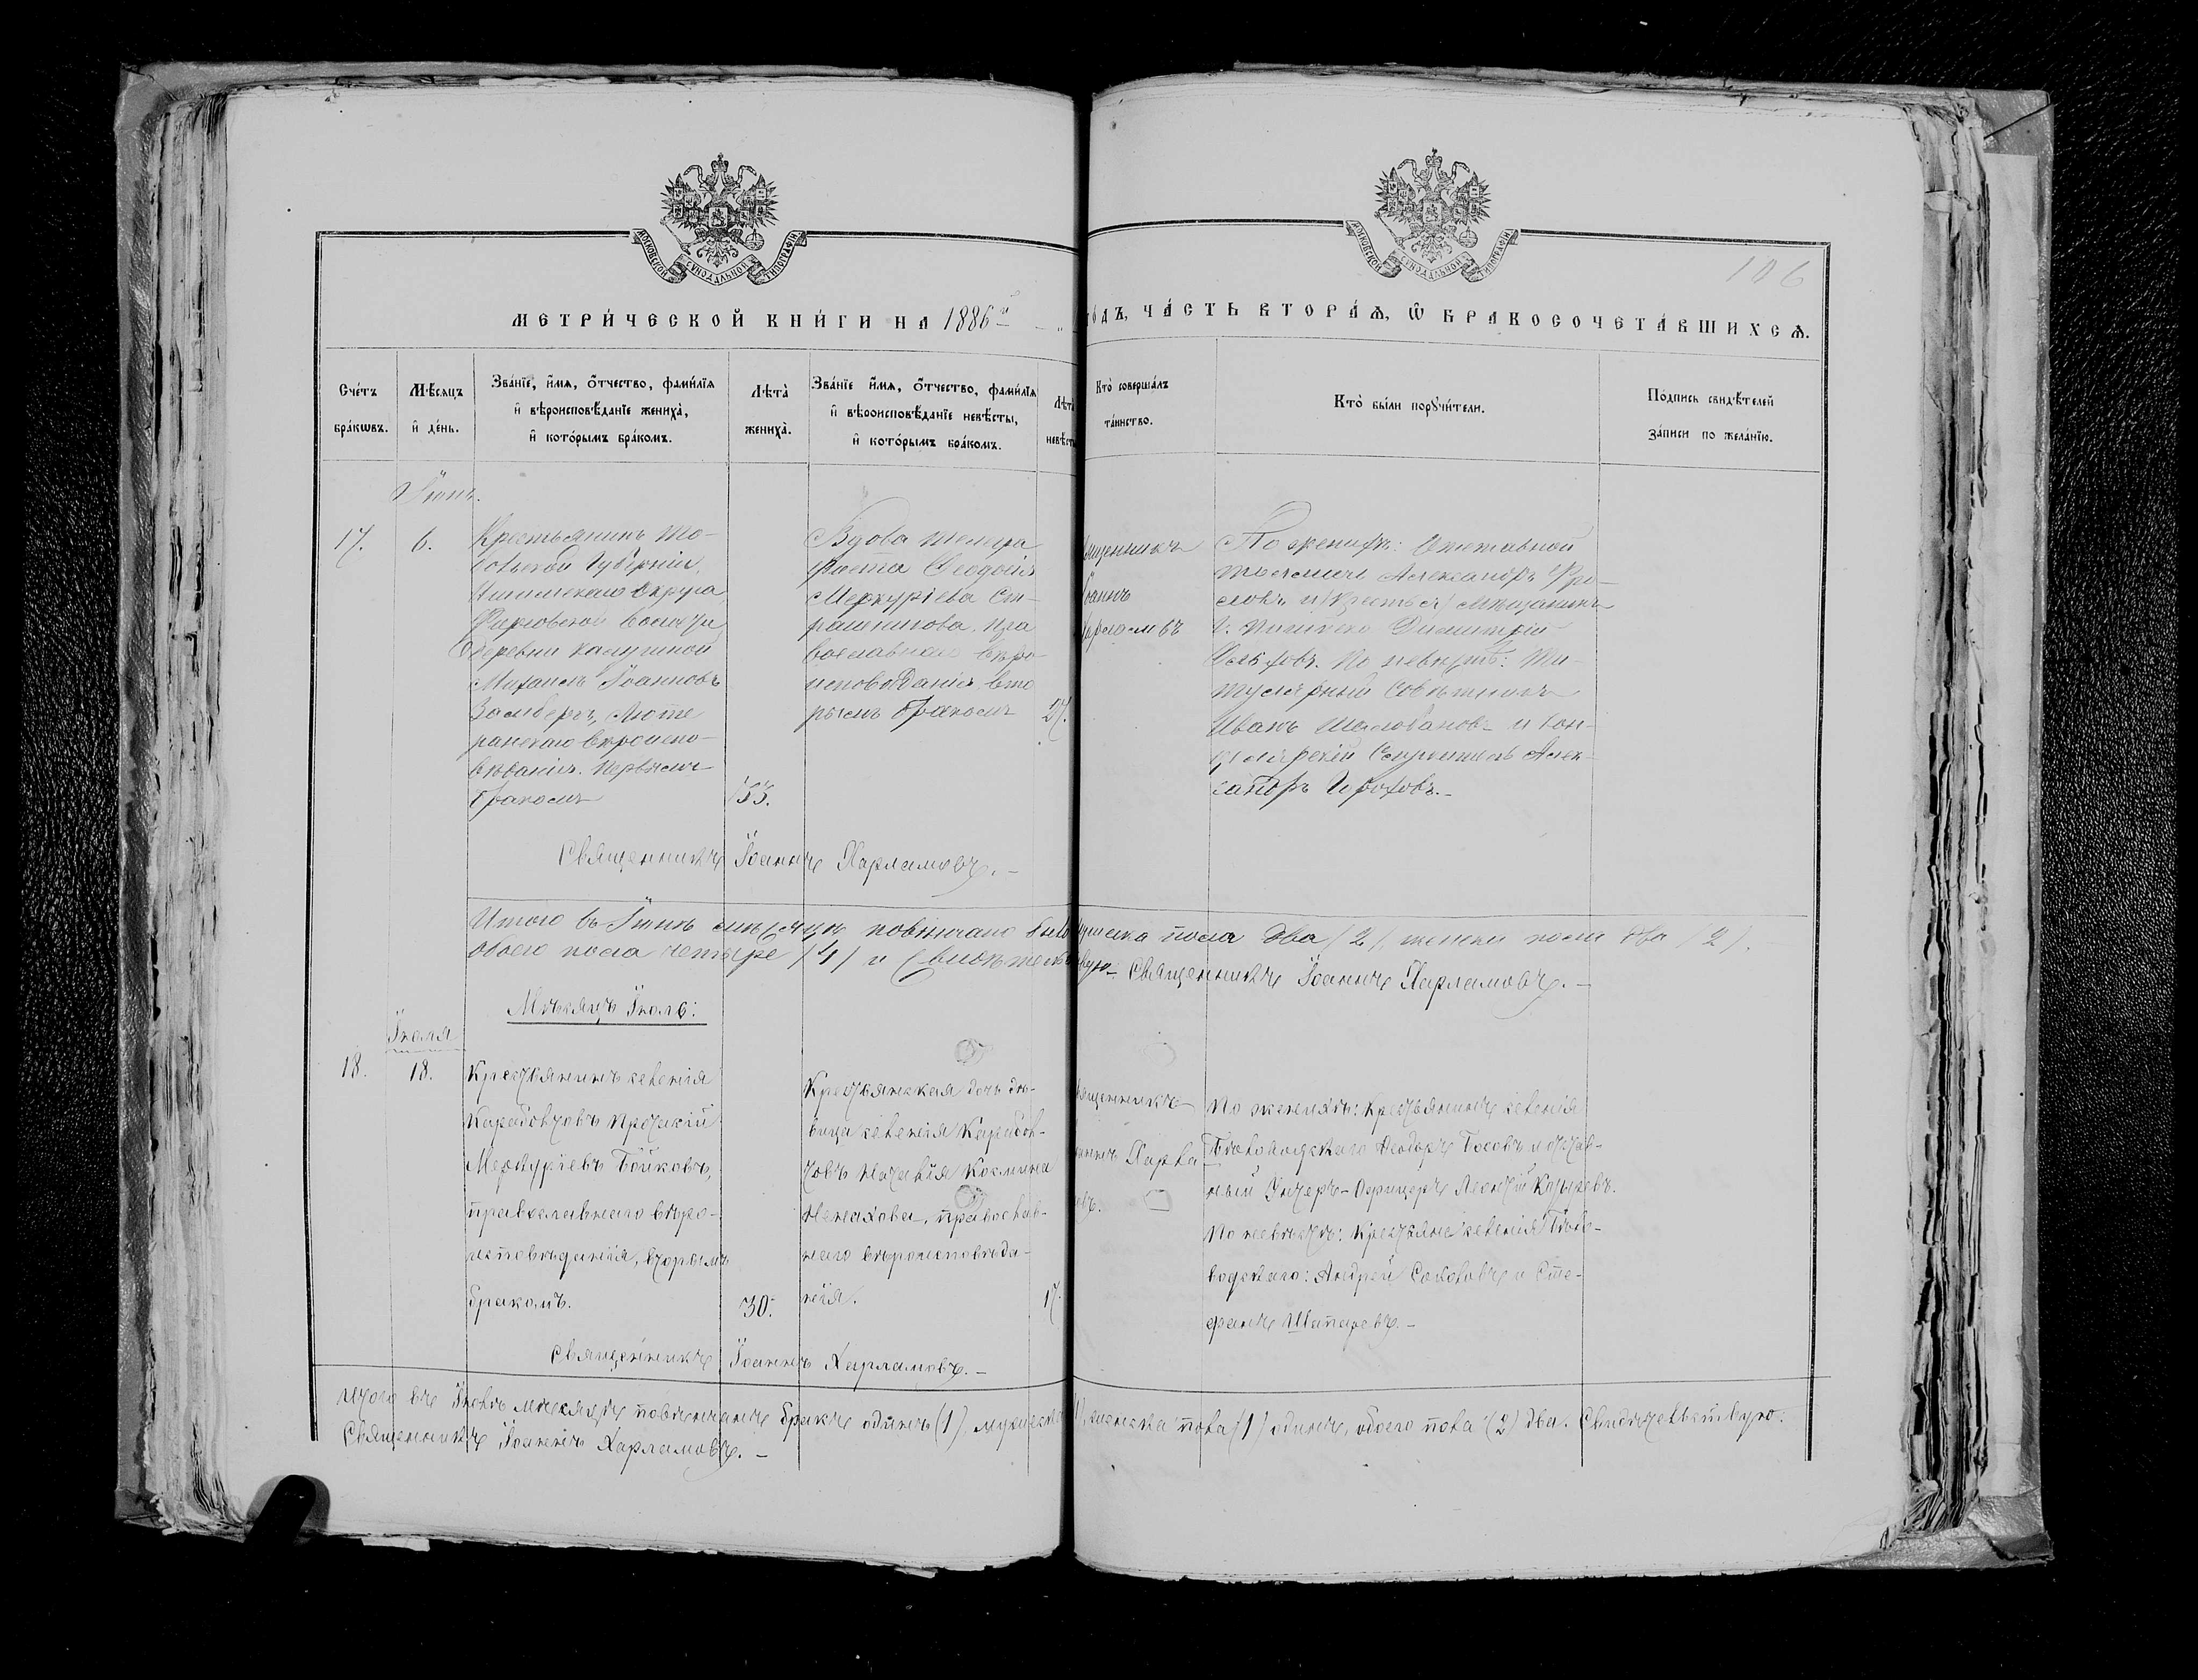 МОСКОВСКОЙ СѴНОДАЛЬНОЙ ТИПОГРАФІИ
МОСКОВСКОЙ СѴНОДАЛЬНОЙ ТИПОГРАФІИ
106
МЕТРИ́ЧЕСКОЙ КНИ́ГИ НА 1886й
ГО́ДЪ, ЧА́СТЬ ВТОРА́Ѧ, Ѽ БРАКОСОЧЕТА́ВШИХСѦ.
Сче́тъ бра́кѡвъ.
Мѣ́сѧцъ и҆ де́нь.
Зва́нїе, и҆́мѧ, ѻ҆́тчество, фами́лїѧ
и҆ вѣроисповѣ́данїе жениха̀,
и҆ кото́рымъ бра́комъ.
Лѣта̀ жениха̀.
Зва́нїе и҆́мѧ, ѻ҆́тчество, фами́лїѧ
и҆ вѣроисповѣ́данїе невѣ́сты,
и҆ кото́рымъ бра́комъ.
Лѣта̀ невѣ́сты
Кто̀ соверша́лъ
та́инство.
Кто̀ бы́ли порꙋчи́тели.
По́дпись свидѣ́телей
за́писи по жела́нїю.
Іюнь.
17.
6.
Крестьянинъ То-
больской Губерніи,
Ишимскаго Округа,
волости
Деревни
Михаилъ Іоанновъ
Люте
ранскаго вѣроиспо-
вѣданія. Первымъ
бракомъ
33.
Вдова телегра
фиста Ѳеодосія
Меркуріева
пра
вославнаго вѣро-
исповѣданія вто
рымъ бракомъ
27.
ященникъ
Іоаннъ
арламовъ
По женихѣ: Отставной
Александръ
мѣщанинъ
Димитрій
По невѣстѣ: Ти-
тулярный Совѣтникъ
Иванъ и Кан-
целярскій Служитель Алек-
сандръ Гороховъ.-
Священникъ Іоаннъ Харламовъ.-
Итого въ Іюнѣ мѣсяцѣ повѣнчано было мужска пола два /2/, женска пола два /2/.
Обоего пола четыре /4/ и Свидѣтельствую- Священникъ Іоаннъ Харламовъ.-
Мѣсяцъ Іюль:
Іюля
18.
18.
Крестьянинъ селенія
Мержуріевъ Бойковъ,
православнаго вѣро-
исповѣданія, вторымъ
бракомъ.
30.
Крестьянская дочь дѣ-
вица селенія
Наталія Космина
православ-
наго вѣроисповѣда-
нія.
17.
ященникъ
оаннъ Харла-
овъ.
По женихѣ: Крестьянинъ селенія
Ѳеодоръ и отстав-
ный Унтеръ-Офицеръ Леонтій Козыревъ.
По невѣстѣ: Крестьяне селенія
водскаго: Андрей и Сте-
фанъ
Священникъ Іоаннъ Харламовъ.-
Итого въ Іюлѣ мѣсяцѣ повѣнчанъ бракъ одинъ (1), мужска 1, женска пола (1) одинъ, обоего пола (2) два. Свидѣтельствую:
Священникъ Іоаннъ Харламовъ.-